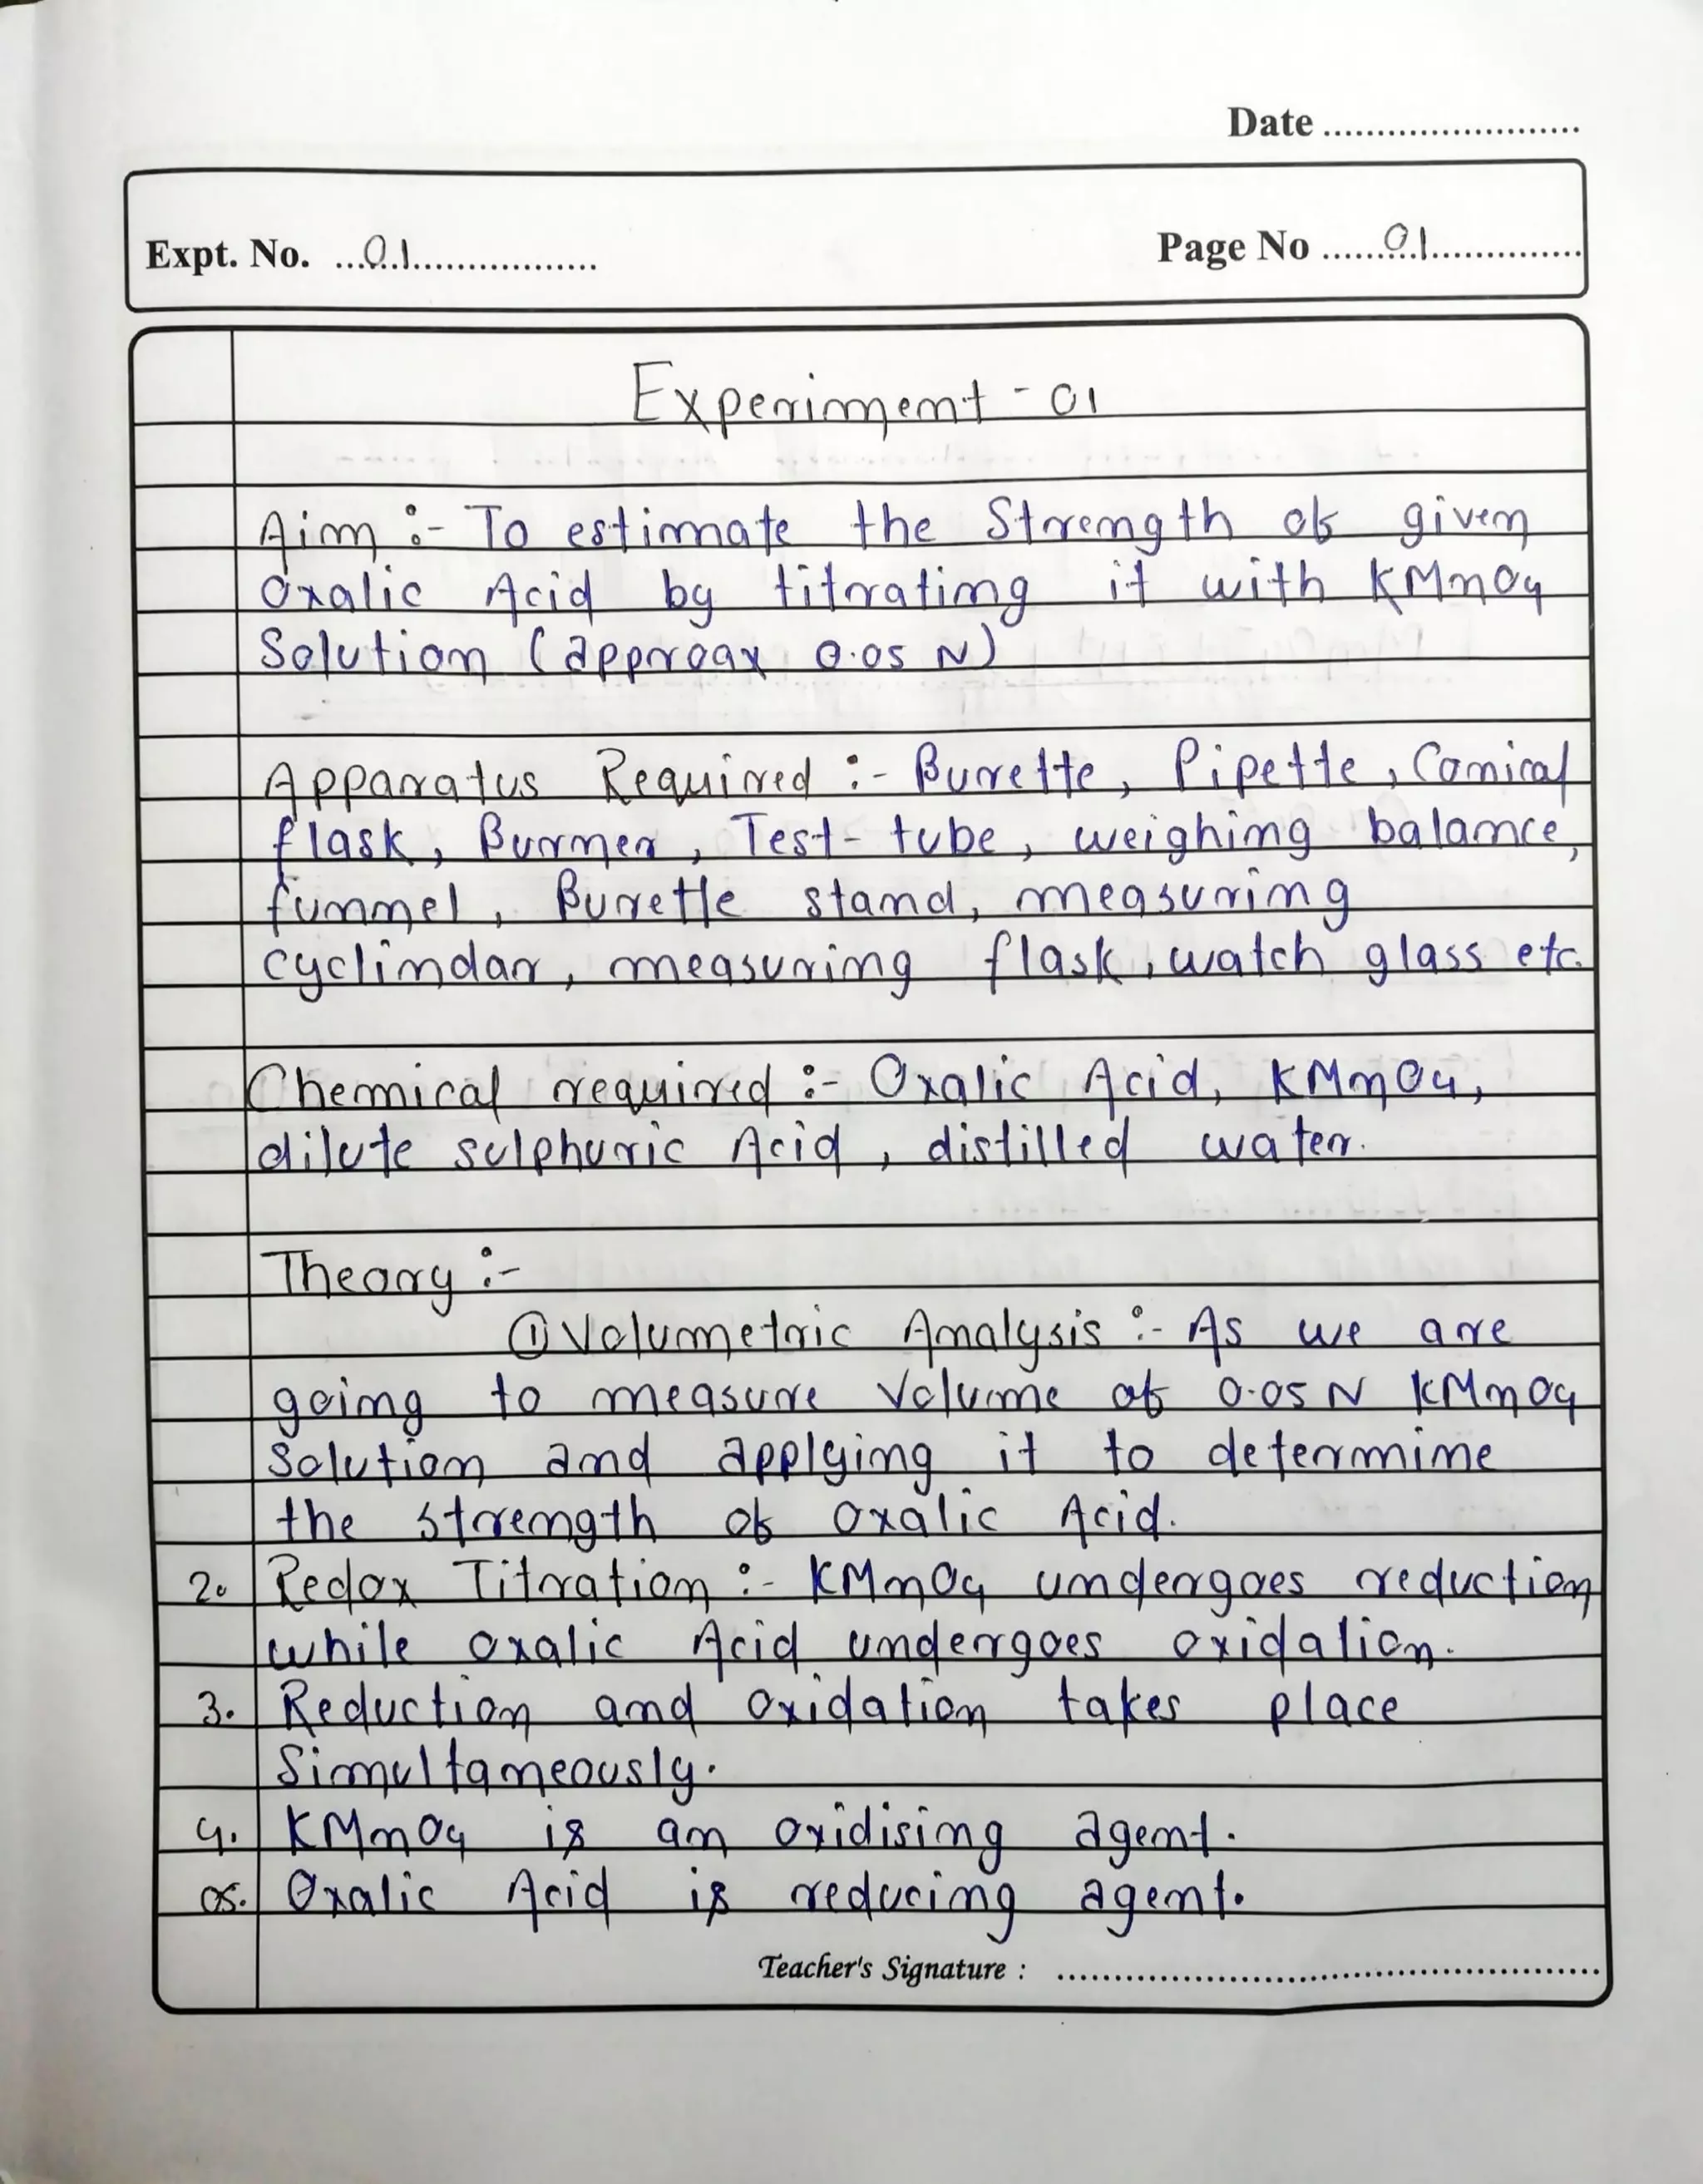 Date ........................
Expt. No. ...01.................. Page No ......01..............
Experiment - 01
Aim :- To estimate the Strength of given
Oxalic Acid by titrating it with KMnO4
Solution (approax 0.05 N)
Apparatus Required :- Burette, Pipette, Conical
flask, Burner, Test-tube, weighing balance,
funnel, Burette stand, measuring
cyclindar, measuring flask, watch glass etc.
Chemical required :- Oxalic Acid, KMnO4,
dilute sulphuric Acid, distilled water.
Theory :-
① Volumetric Analysis :- As we are
going to measure Volume of 0.05 N KMnO4
Solution and applying it to determine
the strength of Oxalic Acid.
2. Redox Titration :- KMnO4 undergoes reduction
while oxalic Acid undergoes oxidation.
3. Reduction and oxidation takes place
Simultaneously.
4. KMnO4 is an oxidising agent.
05. Oxalic Acid is reducing agent.
Teacher's Signature : ..................................................